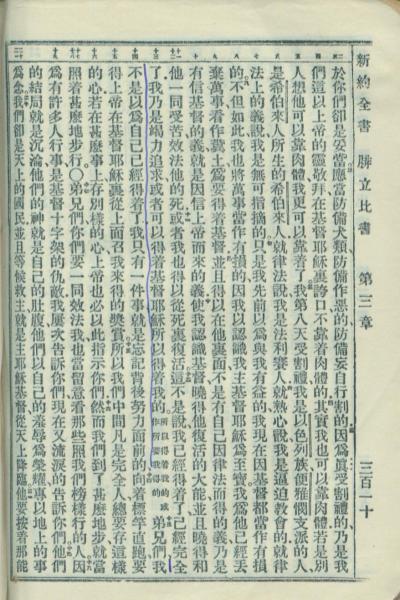 新約全書 腓立比書 第三章 三百一十
於你們卻是妥當應當防備犬類防備作惡的防備妄自行割的因爲眞受割禮的乃是我
們這以上帝的靈敬拜在基督耶穌裏誇口不靠着肉體的其實我也可以靠肉體若是別
人想他可以靠肉體我更可以靠着了我第八天受割禮我是以色列族便雅憫支派的人
是希伯來人所生的希伯來人就律法說我是法利賽人就熱心說我是逼迫教會的就律
法上的義說我是無可指摘的只是我先前以爲與我有益的我現在因基督都當作有損
的不但如此我也將萬事當作有損的因我以認識我主基督耶穌爲至寶我爲他已經丟
棄萬事看作糞土爲要得着基督並且得以在他裏面不是有自己因律法而得的義乃是
有信基督的義就是因信上帝而來的義使我認識基督曉得他復活的大能並且曉得和
他一同受苦效法他的死或者我也得以從死裏復活這不是說我已經得着了已經完全
了我乃是竭力追求或者可以得着基督耶穌所以得着我的所以得着我的或作所要我得的弟兄們我
不是以爲自己已經得着了我只有一件事就是忘記背後努力面前的向着標竿直跑要
得上帝在基督耶穌裏從上面召我來得的獎賞所以我們中間凡是完全人總要存這樣
的心若在甚麼事上存別樣的心上帝也必以此指示你們然而我們到了甚麼地步就當
照着甚麼地步行○弟兄們你們要一同效法我也當留意看那些照我們榜樣行的人因
爲有許多人行事是基督十字架的仇敵我屢次告訴你們現在又流淚的告訴你們他們
的結局就是沉淪他們的神就是自己的肚腹他們以自己的羞辱爲榮耀專以地上的事
爲念我們卻是天上的國民並且等候救主就是主耶穌基督從天上降臨他要按着那能